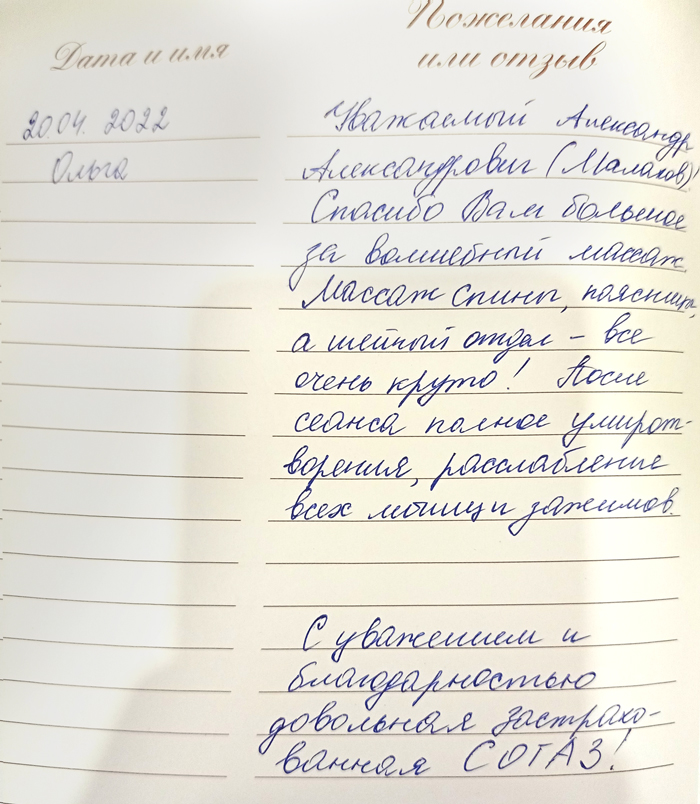 Дата и имя
Пожелания
или отзыв
20.04.2022
Ольга
Уважаемый Александр
Александрович (Малахов)!
Спасибо Вам большое
за волшебный массаж.
Массаж спины, поясницы,
а шейный отдел – все
очень круто! После
сеанса полное умирот-
ворения, расслабление
всех мышц и зажимов.
С уважением и
благодарностью
довольная застрахо-
ванная СОГАЗ!